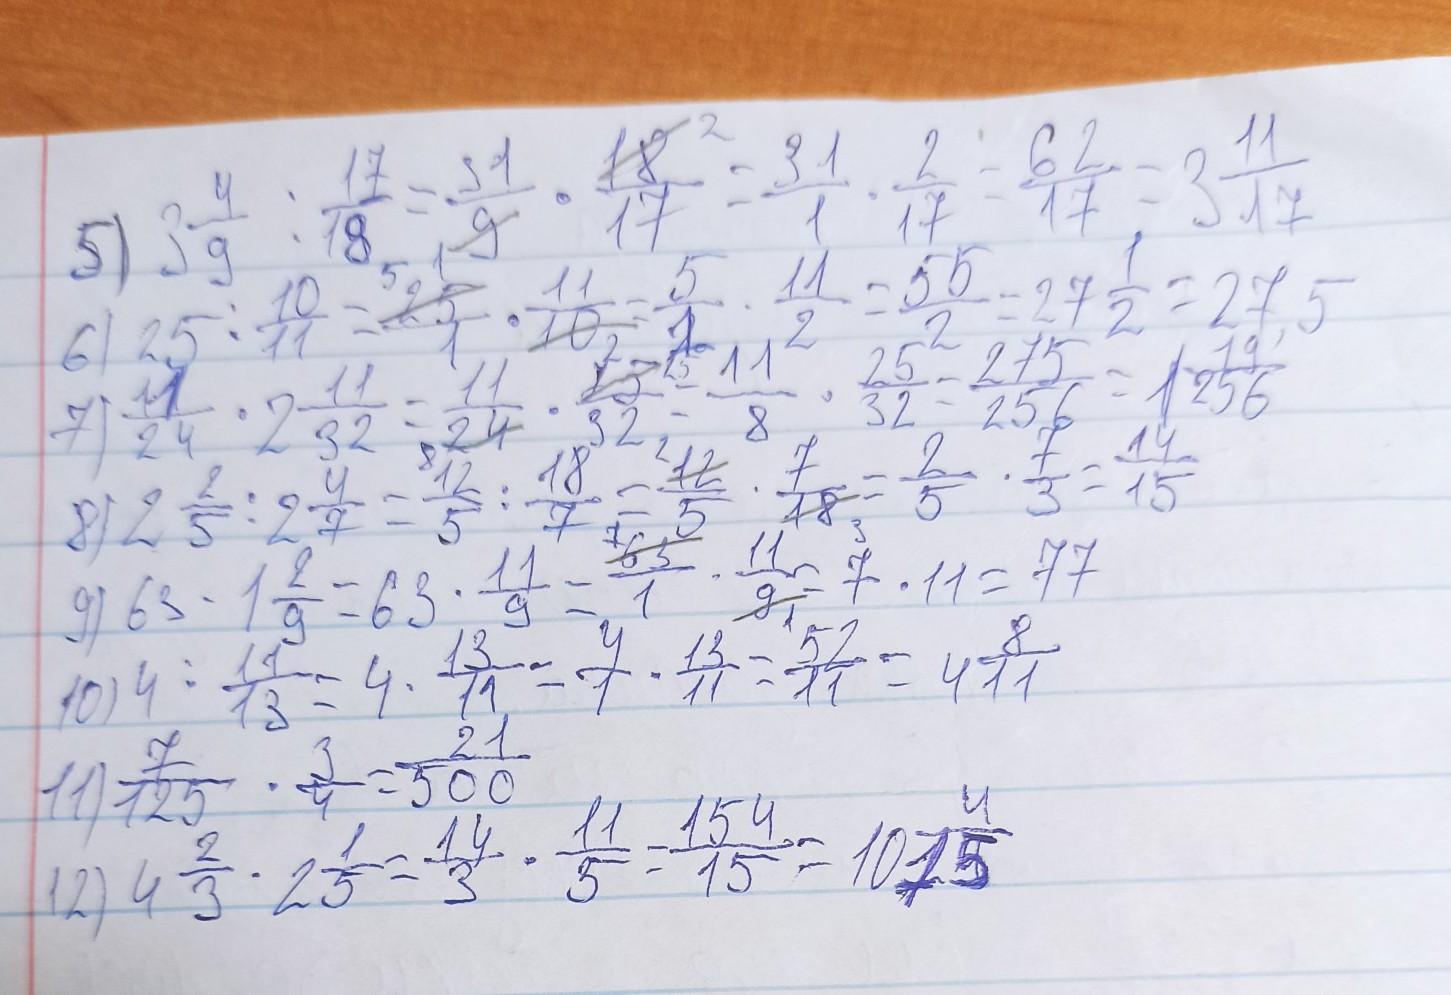 5) 3 4/9 : 17/18 = 31/9 · 18/17 = 31/1 · 2/17 = 62/17 = 3 11/17
6) 25 : 10/11 = 25/1 · 11/10 = 5/1 · 11/2 = 55/2 = 27 1/2 = 27,5
7) 11/24 · 2 11/32 = 11/24 · 75/32 = 11/8 · 25/32 = 275/256 = 1 19/256
8) 2 2/5 : 2 4/7 = 12/5 : 18/7 = 12/5 · 7/18 = 2/5 · 7/3 = 14/15
9) 63 · 1 2/9 = 63 · 11/9 = 63/1 · 11/9 = 7 · 11 = 77
10) 4 : 11/13 = 4 · 13/11 = 4/1 · 13/11 = 52/11 = 4 8/11
11) 7/125 · 3/4 = 21/500
12) 4 2/3 · 2 1/5 = 14/3 · 11/5 = 154/15 = 10 4/15